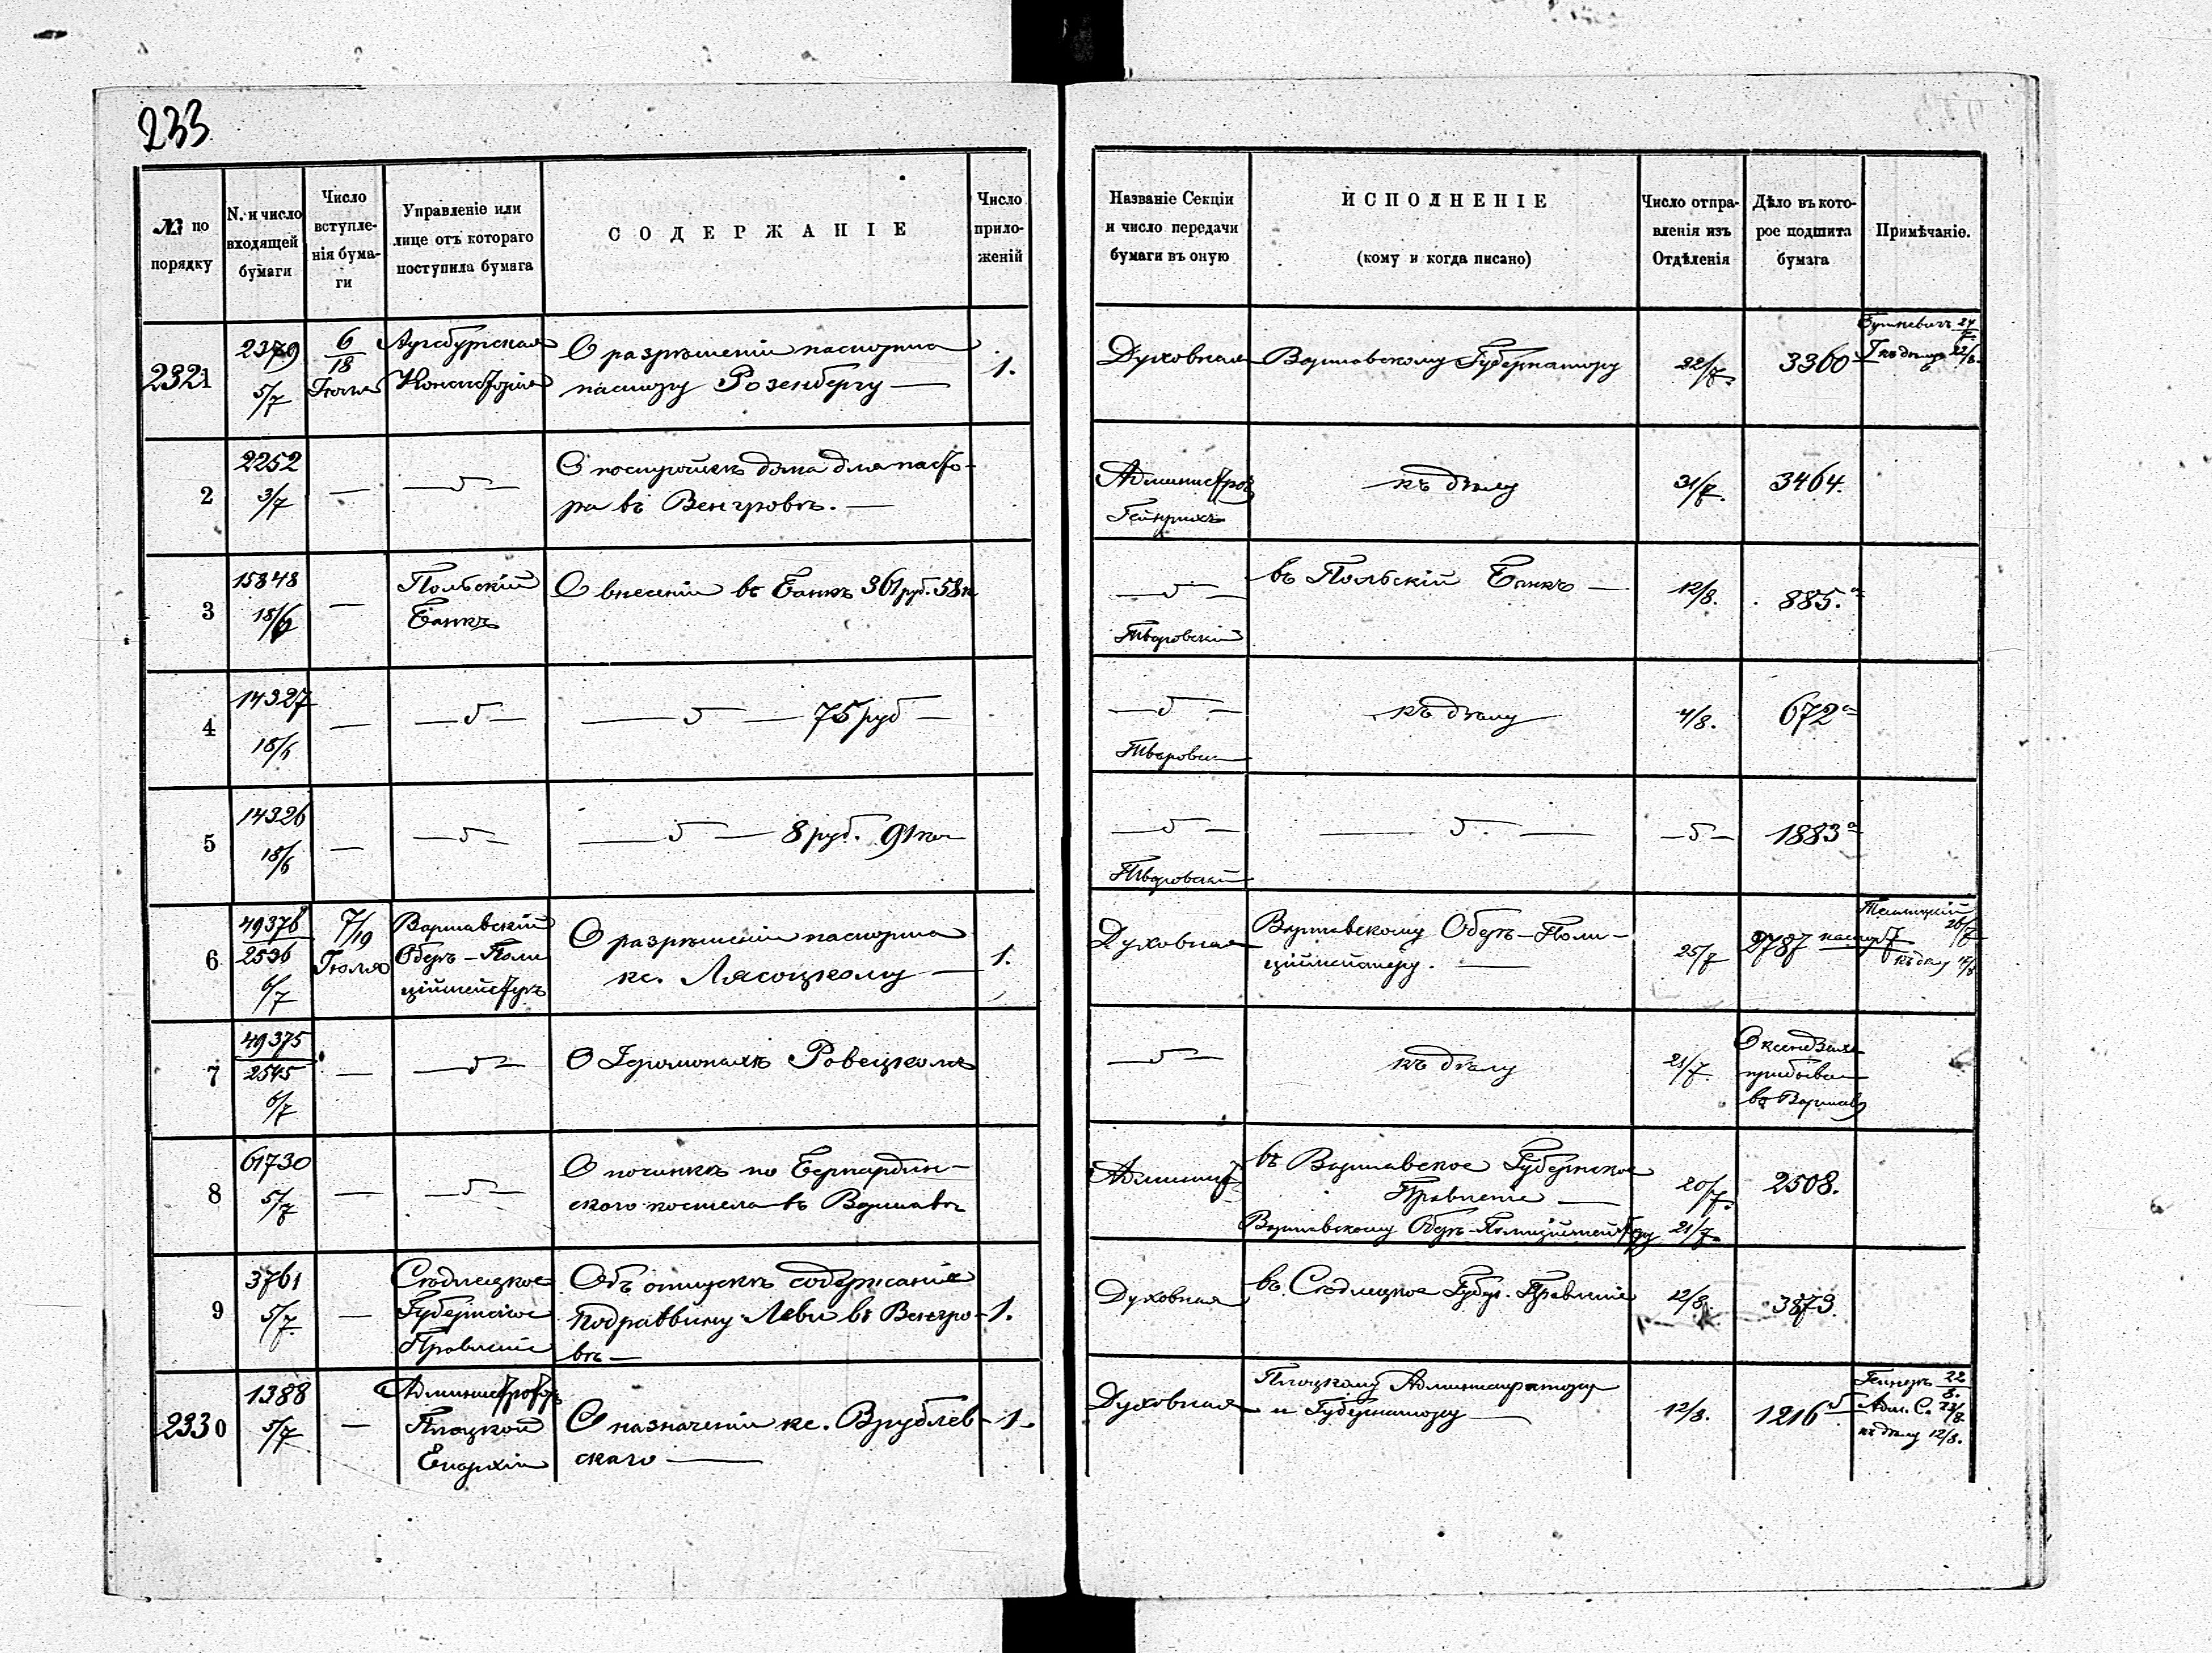 233
№ по порядку
N. и число входящей бумаги
Число вступленія бумаги
Управленіе или лице отъ котораго поступила бумага
СОДЕРЖАНІЕ
Число приложеній
Названіе Секціи и число передачи бумаги въ оную
ИСПОЛНЕНІЕ
(кому и когда писано)
Число отправленія изъ Отдѣленія
Дѣло въ которое подшита бумага
Примѣчаніе.
2321
2379
5/7
6/18 Іюля
Аугсбургская
Консисторія
О разрѣшеніи паспорта
пастору Розенбергу —
1.
Духовная
Варшавскому Губернатору
22/7.
3360
къ дѣлу
2
2252
3/7
—
— " —
О постройкѣ дома для пасто-
ра въ Венгровѣ. —
Администрат.
Гейнрихъ
къ дѣлу
31/7.
3464.
3
15848
18/6
—
Польскій
Банкъ
О внесеніи въ Банкъ 361 руб. 58 к
— " —
Творовскій
въ Польскій Банкъ —
12/8.
885.а
4
14327
18/6
—
— " —
— " — 75 руб —
— " —
къ дѣлу
4/8.
672а
5
14326
18/6
—
— " —
— " — 8 руб. 91 коп
— " —
Творовскій
— " —
— " —
1883а
6
49376
2536
6/7
7/19 Іюля
Варшавскій
Оберъ-Поли
цiймейстеръ
О разрѣшеніи паспорта
кс. Лясоцкому —
1.
Духовная
Варшавскому Оберъ-Поли-
цiймейстеру. —
25/7
2787 паспорт
26/7
къ дѣлу
7
49375
2545
6/7
—
— " —
О Іеромонахѣ Ровецкомъ
— " —
къ дѣлу
21/7.
О ксендзахъ
прибыв
въ Варшаву
8
61730
5/7
—
— " —
О починкѣ по Бернардин-
скаго костела въ Варшавѣ
Админист
въ Варшавское Губернское
Правленіе —
20/7.
Варшавскому Оберъ-Полицiймейстеру 21/7.
2508.
9
3761
5/7
—
Сѣдлецкое
Губернское
Правленіе
Объ отпускѣ содержанія
подраввину Леви въ Венгро-
вѣ —
1.
Духовная
въ Сѣдлецкое Губер. Правленіе
12/8.
3873.
2330
1388
5/7
—
Администраторъ
Плоцкой
Епархіи
О назначеніи кс. Врублев-
скаго —
1.
Духовная
Плоцкому Администратору
и Губернатору —
12/8.
1216б
22/8.
Адм. С. 23/8
къ дѣлу 12/8.